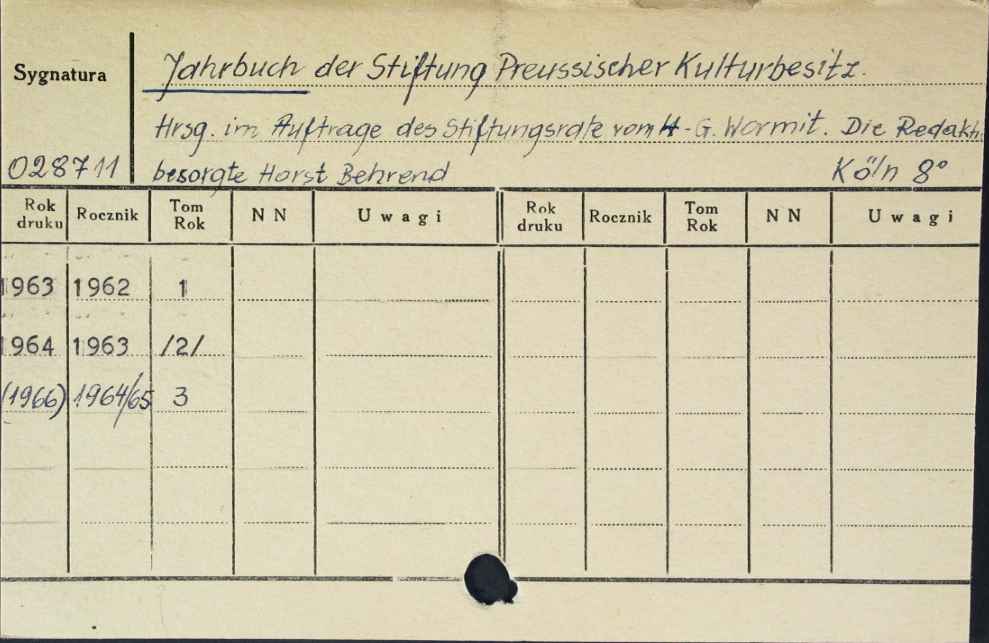 Sygnatura
Jahrbuch der Stiftung Preussischer Kulturbesitz.
Hrsg. im Auftrage des Stiftungsrate vom H.-G. Wormit. Die Redakti
028711 besorgte Horst Behrend Köln 8°
Rok druku Rocznik Tom Rok NN Uwagi Rok druku Rocznik Tom Rok NN Uwagi
1963 1962 1
1964 1963 /2/
(1966) 1964/65 3